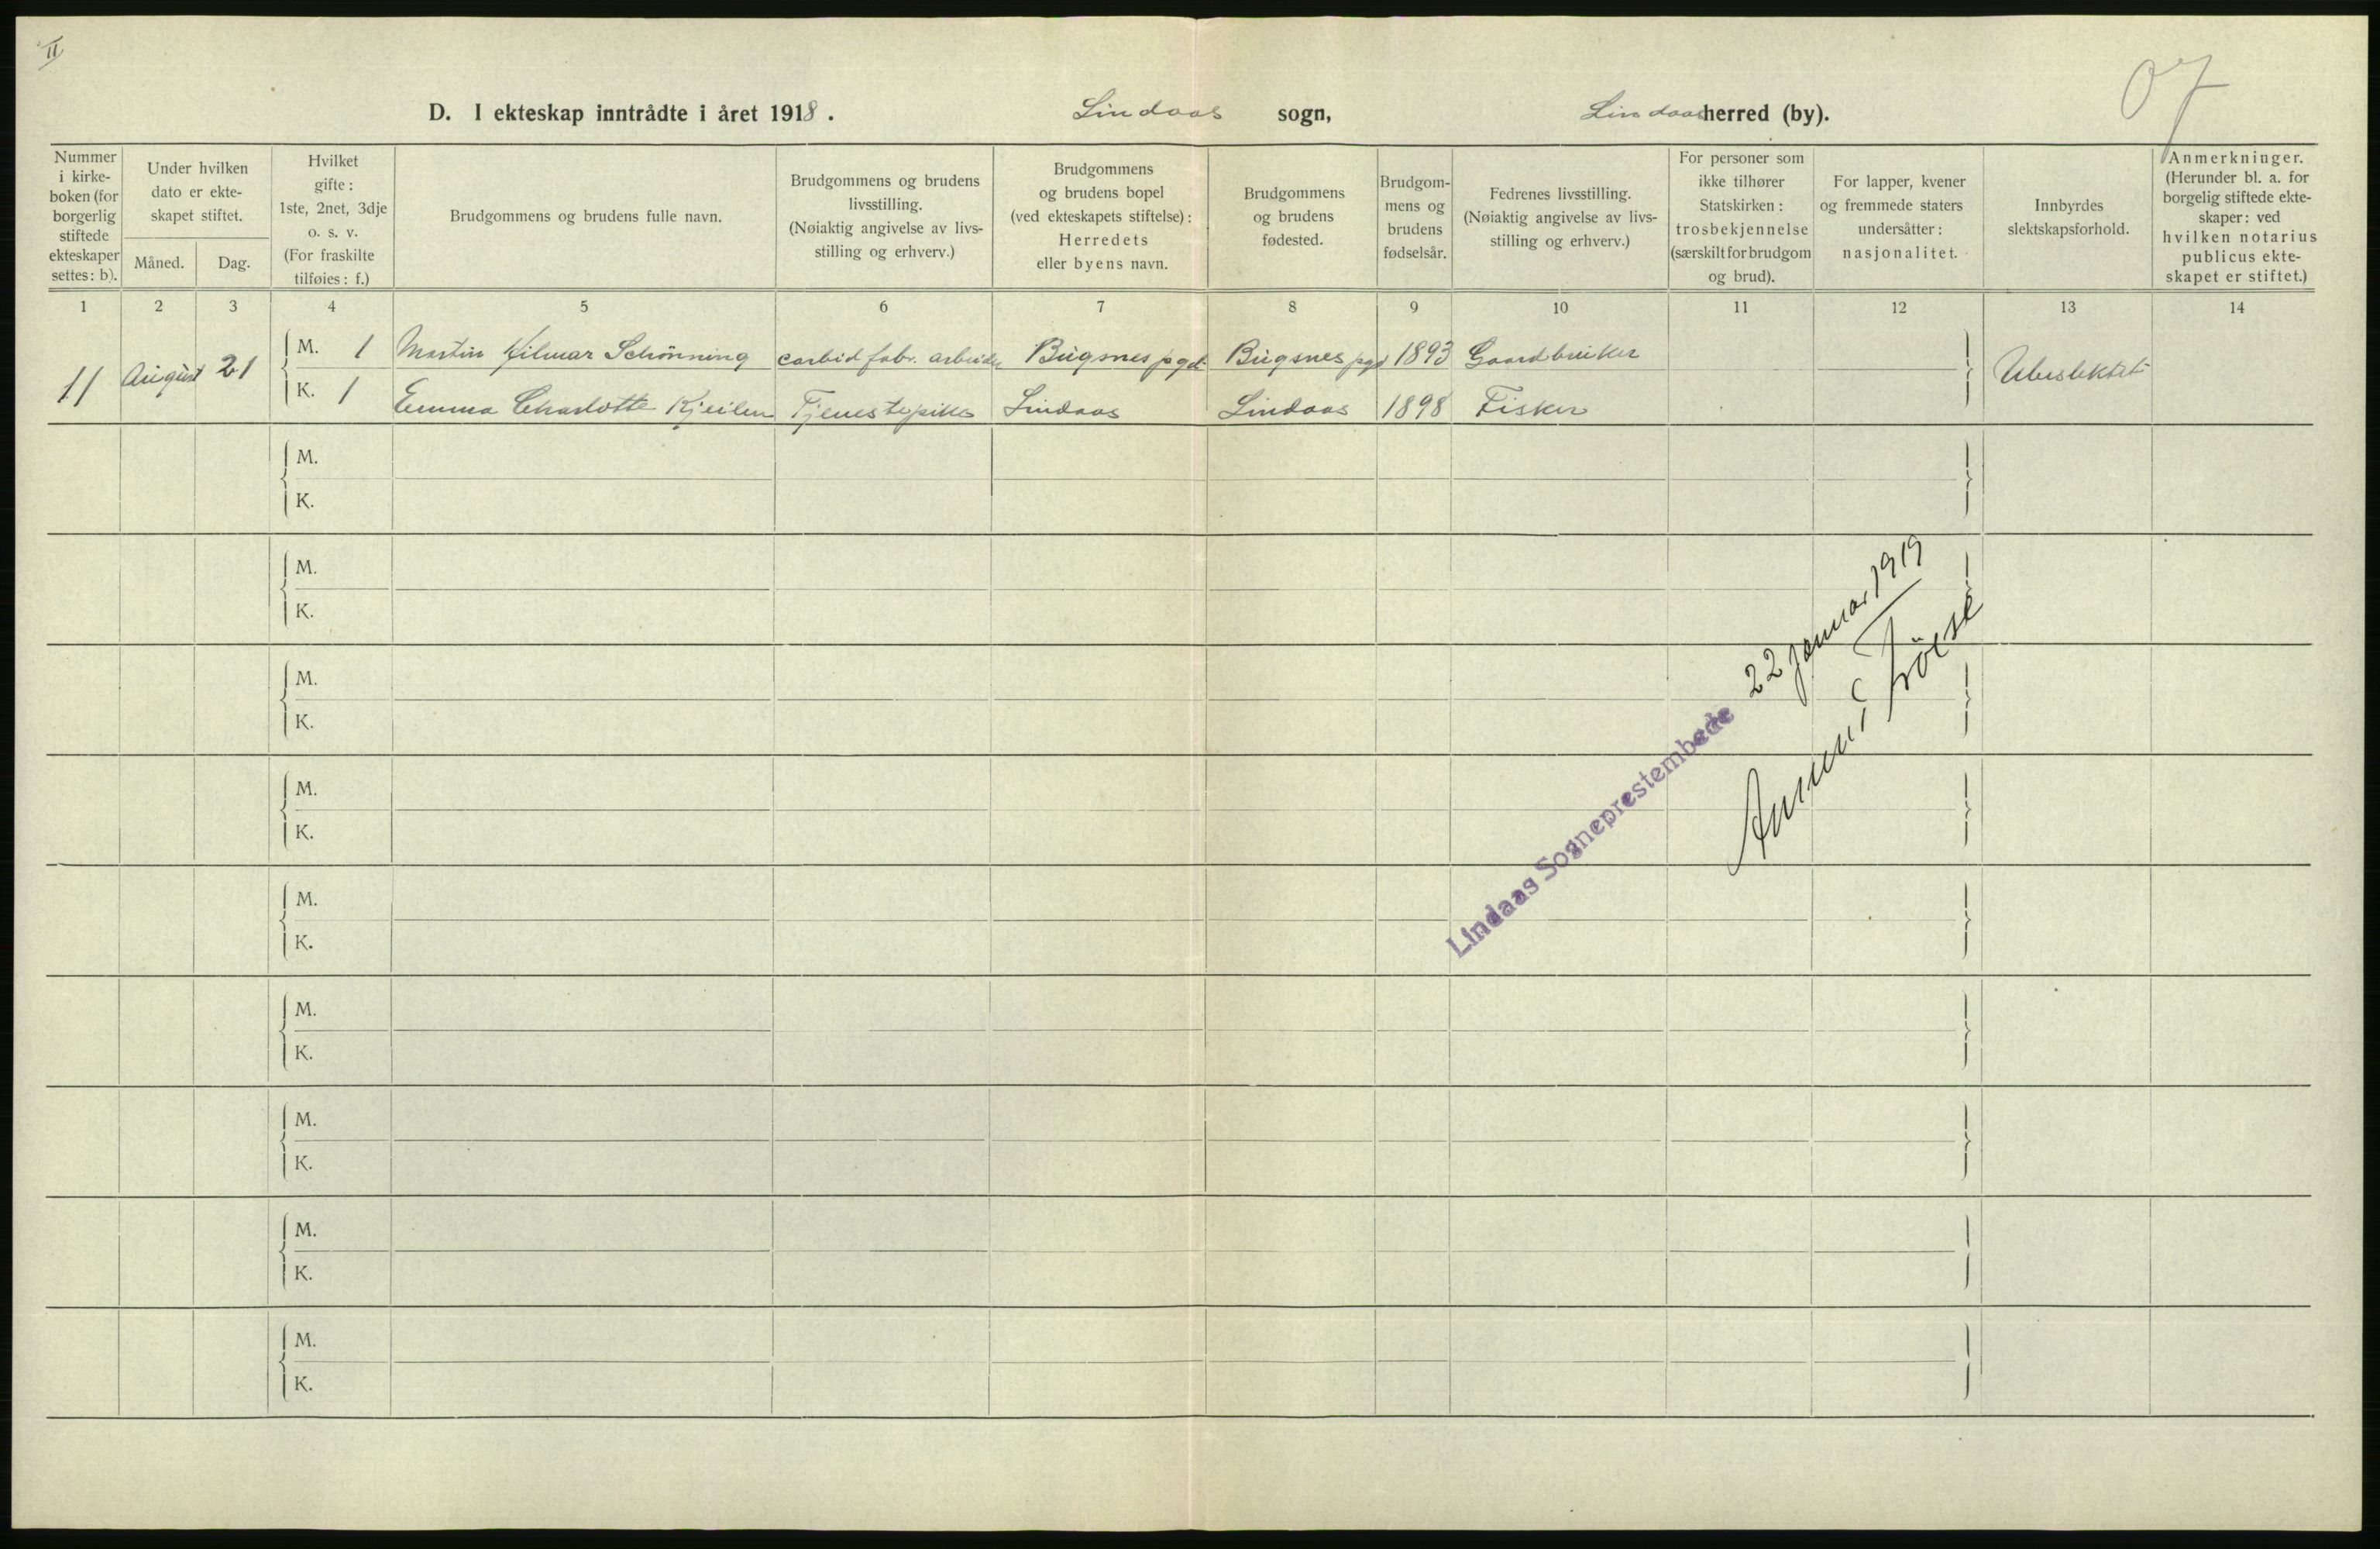 II
07
D. I ekteskap inntrådte i året 1918. Lindaas sogn, Lindaas herred (by).
Nummer i kirkeboken (for borgerlig stiftede ekteskaper settes: b).
Under hvilken dato er ekteskapet stiftet.
Måned. Dag.
Hvilket gifte: 1ste, 2net, 3dje o. s. v. (For fraskilte tilføies: f.)
Brudgommens og brudens fulle navn.
Brudgommens og brudens livsstilling. (Nøiaktig angivelse av livsstilling og erhverv.)
Brudgommens og brudens bopel (ved ekteskapets stiftelse): Herredets eller byens navn.
Brudgommens og brudens fødested.
Brudgommens og brudens fødselsår.
Fedrenes livsstilling. (Nøiaktig angivelse av livsstilling og erhverv.)
For personer som ikke tilhører Statskirken: trosbekjennelse (særskilt for brudgom og brud).
For lapper, kvener og fremmede staters undersåtter: nasjonalitet.
Innbyrdes slektskapsforhold.
Anmerkninger. (Herunder bl. a. for borgelig stiftede ekteskaper: ved hvilken notarius publicus ekteskapet er stiftet.)
1 2 3 4 5 6 7 8 9 10 11 12 13 14
11 August 21 M. 1 Martin Hilmar Schönning carbid fabr. arbeider Bugsnes pgd. Bugsnes pgd 1893 Gaardbruker Ubeslektet
K. 1 Emma Charlotte Kjeilen Tjenestepike Lindaas Lindaas 1898 Fisker
M.
K.
M.
K.
M.
K.
M.
K.
M.
K.
M.
K.
M.
K.
M.
K.
M.
K.
Lindaas Sogneprestembede 22 januar 1919